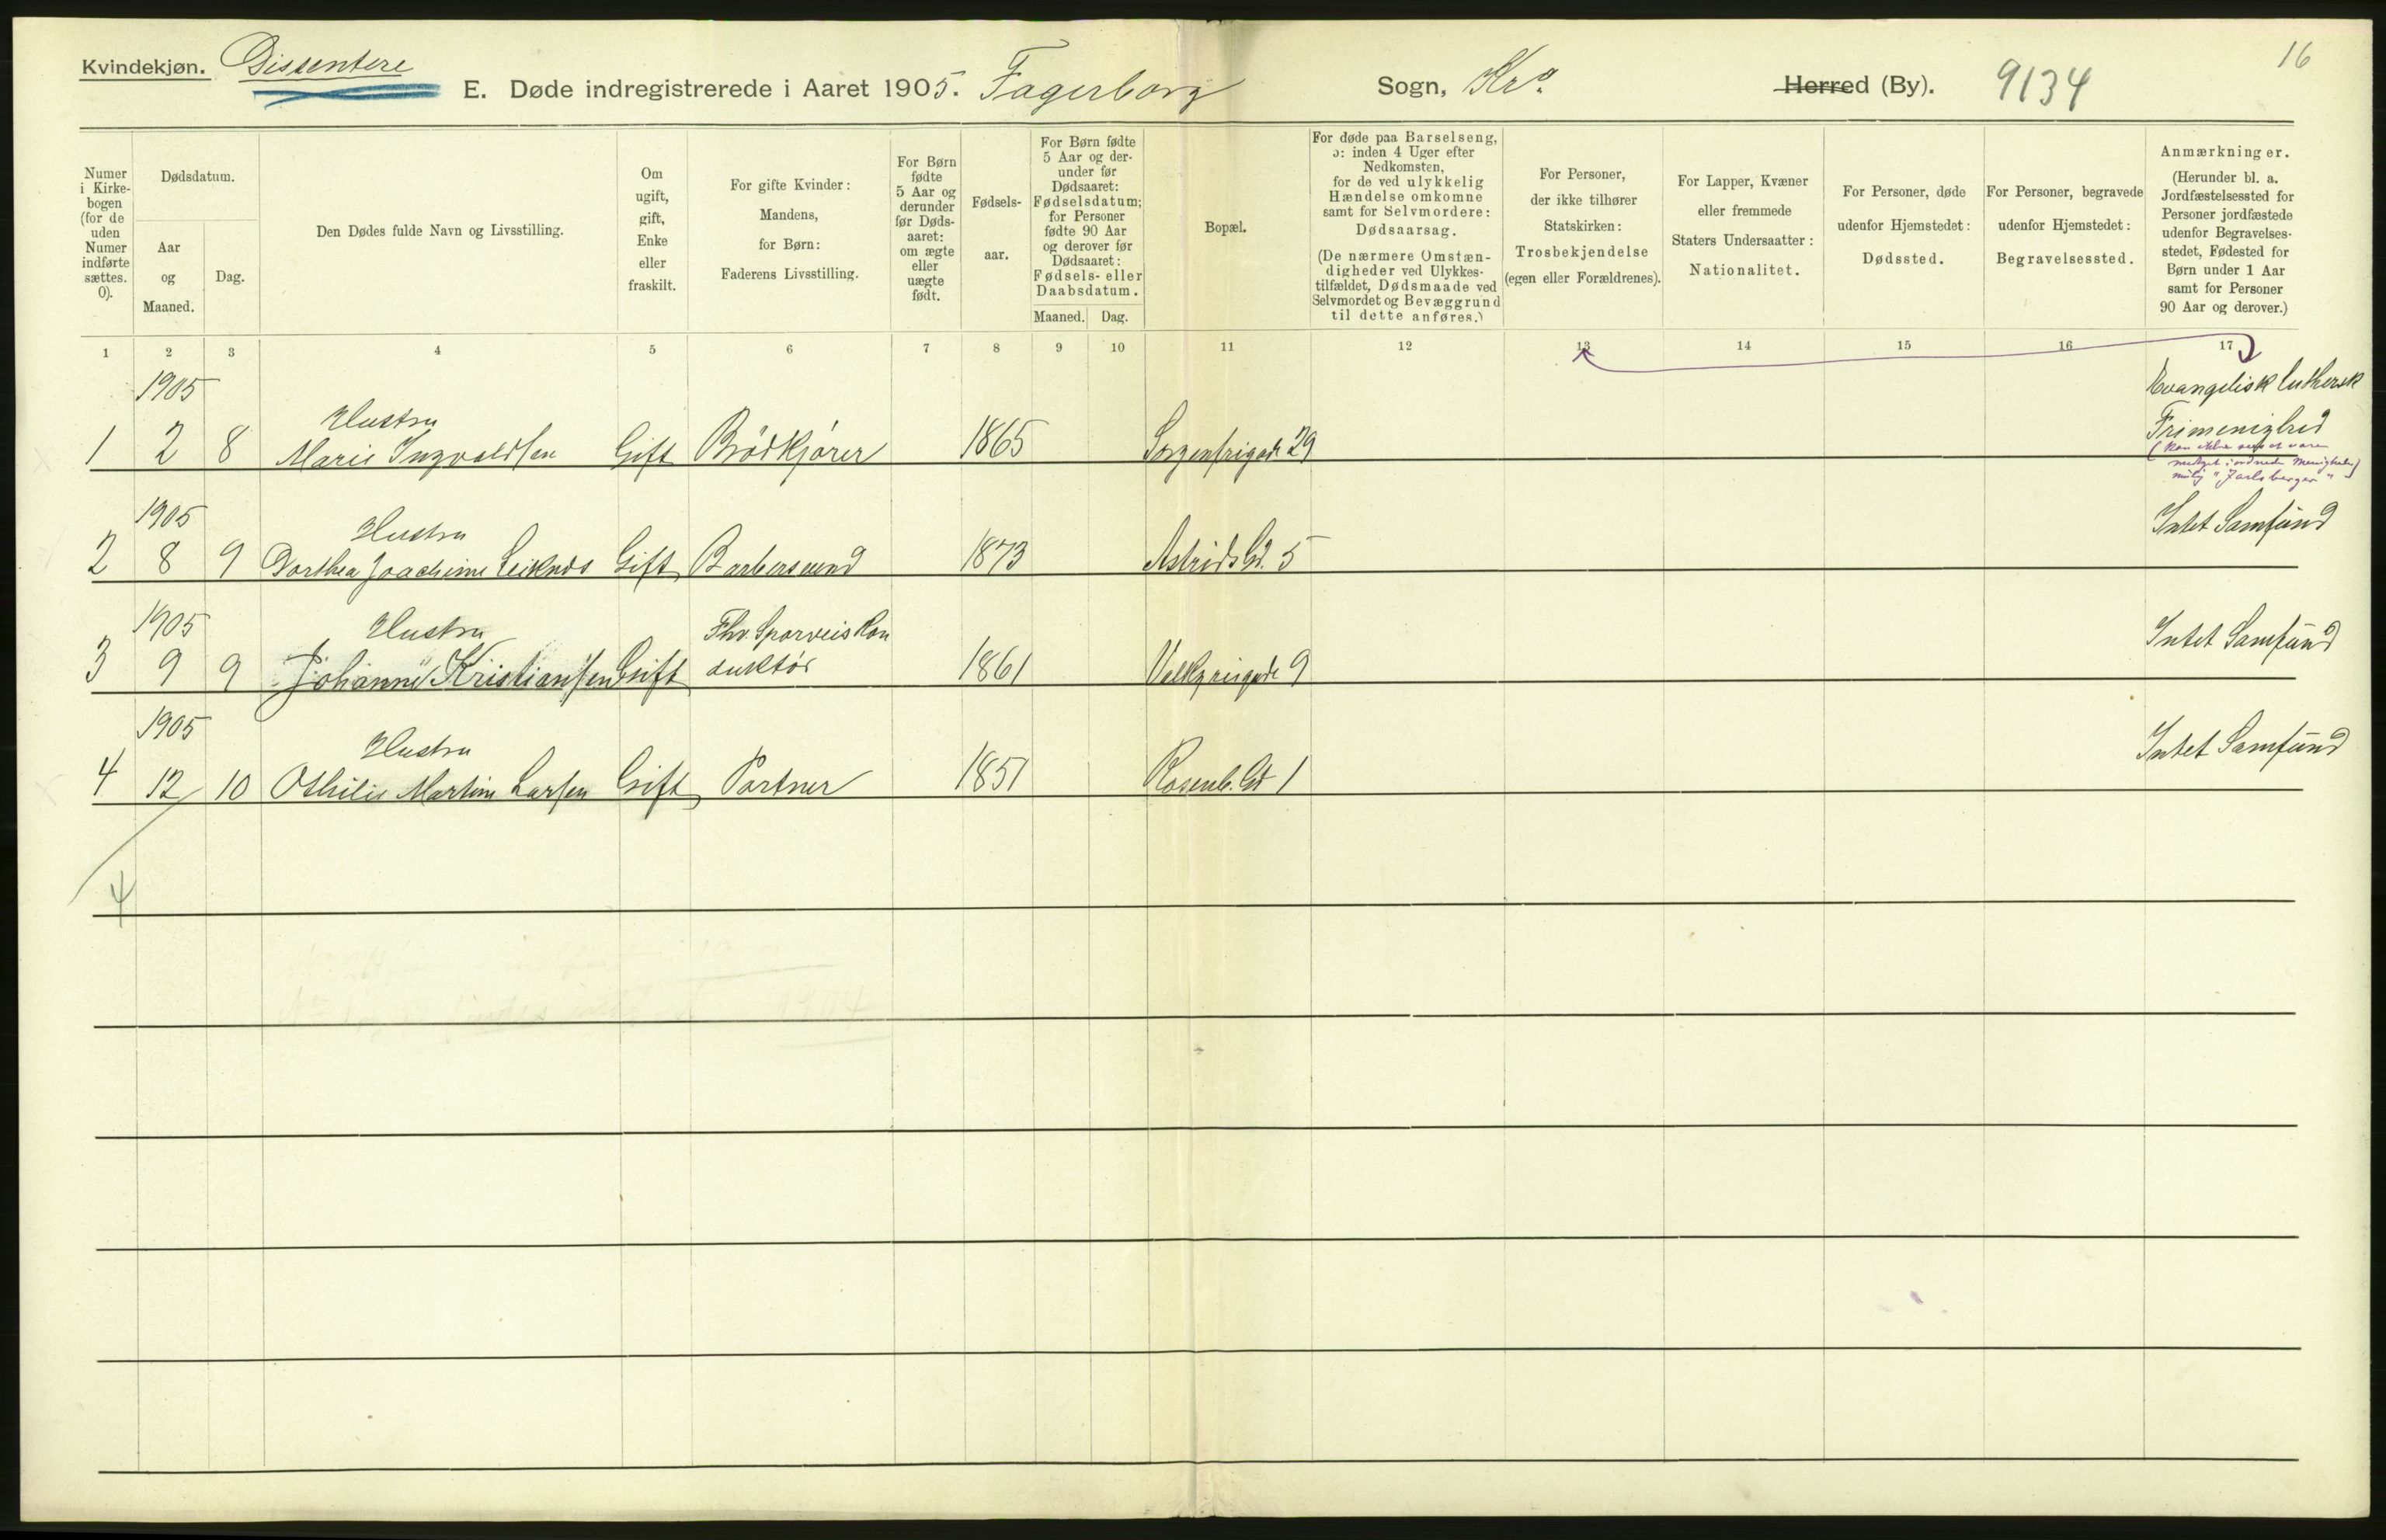 16
Kvindekjøn. Dissentere
E. Døde indregistrerede i Aaret 1905. Fagerborg Sogn, Kra. Herred (By). 9134
Numer i Kirkebogen (for de uden Numer indførte sættes. 0).
Dødsdatum.
Aar og Maaned.
Dag.
Den Dødes fulde Navn og Livsstilling.
Om ugift, gift, Enke eller fraskilt.
For gifte Kvinder: Mandens, for Børn: Faderens Livsstilling.
For Børn fødte 5 Aar og derunder før Dødsaaret: om ægte eller uægte født.
Fødselsaar.
For Børn fødte 5 Aar og derunder før Dødsaaret: Fødselsdatum; for Personer fødte 90 Aar og derover før Dødsaaret: Fødsels- eller Daabsdatum.
Maaned. Dag.
Bopæl.
For døde paa Barselseng, ɔ: inden 4 Uger efter Nedkomsten, for de ved ulykkelig Hændelse omkomne samt for Selvmordere: Dødsaarsag.
(De nærmere Omstændigheder ved Ulykkestilfældet, Dødsmaade ved Selvmordet og Bevæggrund til dette anføres.)
For Personer, der ikke tilhører Statskirken: Trosbekjendelse (egen eller Forældrenes).
For Lapper, Kvæner eller fremmede Staters Undersaatter: Nationalitet.
For Personer, døde udenfor Hjemstedet: Dødssted.
For Personer, begravede udenfor Hjemstedet: Begravelsessted.
Anmærkninger.
(Herunder bl. a. Jordfæstelsessted for Personer jordfæstede udenfor Begravelsesstedet, Fødested for Børn under 1 Aar samt for Personer 90 Aar og derover.)
1 2 3 4 5 6 7 8 9 10 11 12 13 14 15 16 17
1905 Evangelisk luthersk
Hustru Frimenighed
1 2 8 Marie Ingvaldsen Gift Bödkjører 1865 Sorgenfrigade 29
(kan ikke
"Jarlsberger"
1905 Hustru Intet Samfund
2 8 9 Dorthea Joachime Gift Barbersvend 1873 Astrids Gd. 5
1905 Hustru Fhv. Sporveiskon Intet Samfund
3 9 9 Johanne Kristiansen Gift duktør 1861 Valkyriegade 9
1905 Hustru Intet Samfund
4 12 10 Othilie Martine Larsen Gift Portner 1851 Rosenb. Gd 1
4